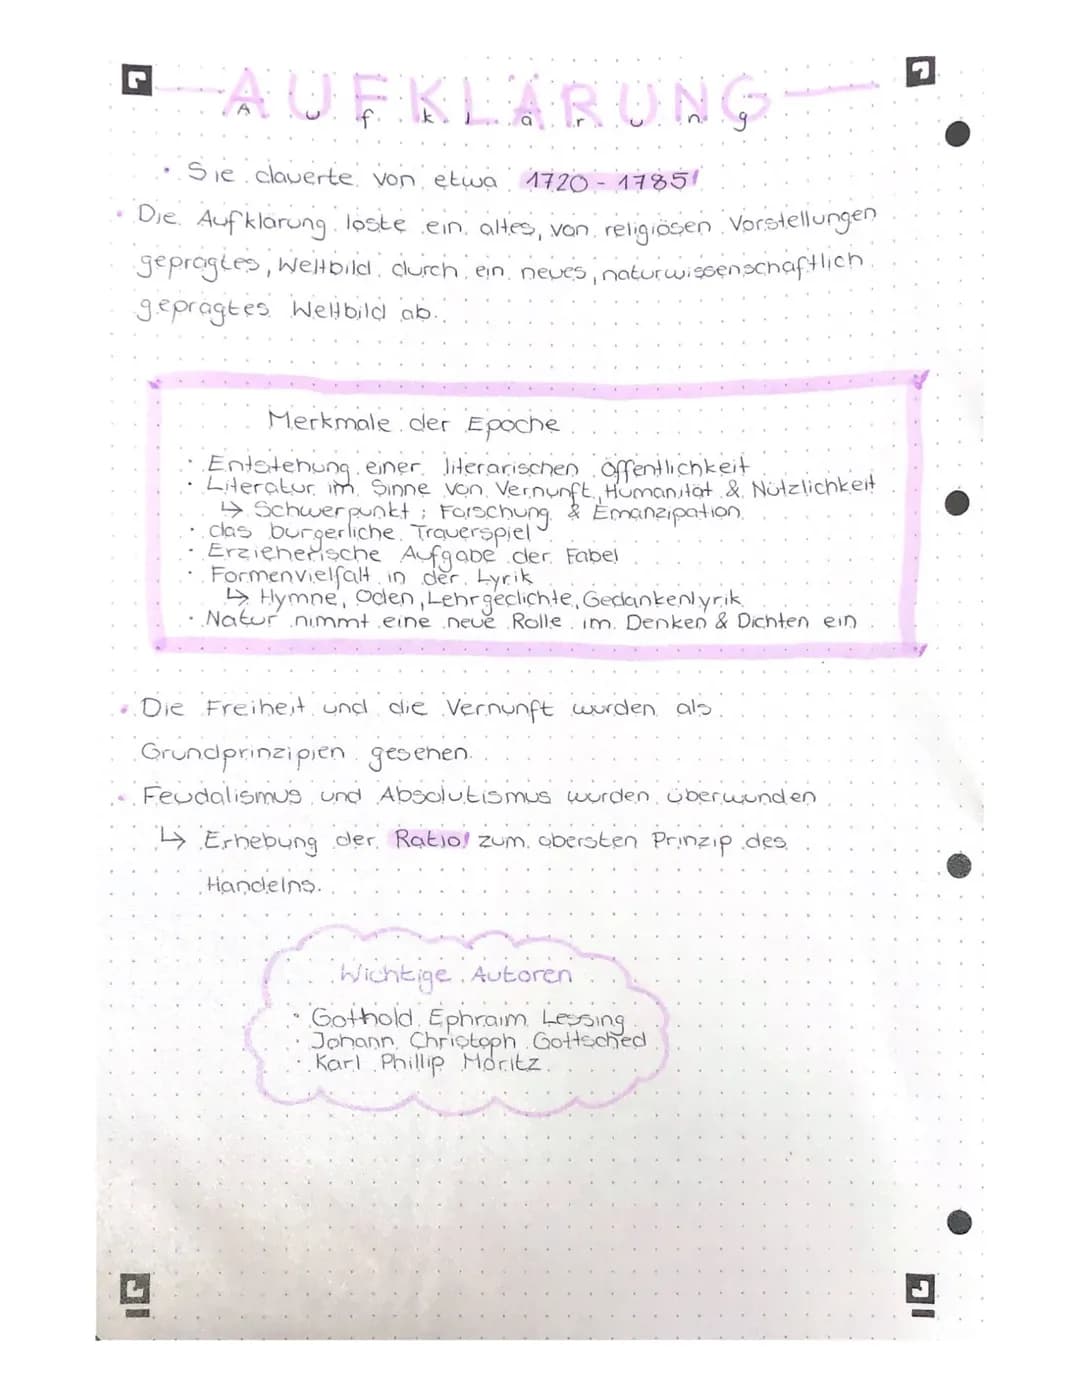 AUFKLÄRUNG
Aufklärung
• Sie dauerte von etwa 1720 - 1785!
• Die Aufklärung löste ein altes, von religiösen Vorstellungen
geprägtes, Weltbild durch ein neues, naturwissenschaftlich
geprägtes Weltbild ab.
Merkmale der Epoche
• Entstehung einer literarischen Öffentlichkeit
• Literatur im Sinne von Vernunft, Humanität & Nützlichkeit
↳ Schwerpunkt: Forschung & Emanzipation
• das bürgerliche Trauerspiel
• Erzieherische Aufgabe der Fabel
• Formenvielfalt in der Lyrik
↳ Hymne, Oden, Lehrgedichte, Gedankenlyrik
• Natur nimmt eine neue Rolle im Denken & Dichten ein
• Die Freiheit und die Vernunft wurden als
Grundprinzipien gesehen.
• Feudalismus und Absolutismus wurden überwunden
↳ Erhebung der Ratio! zum obersten Prinzip des
Handelns.
Wichtige Autoren
• Gothold Ephraim Lessing
• Johann Christoph Gottsched
• Karl Phillip Moritz